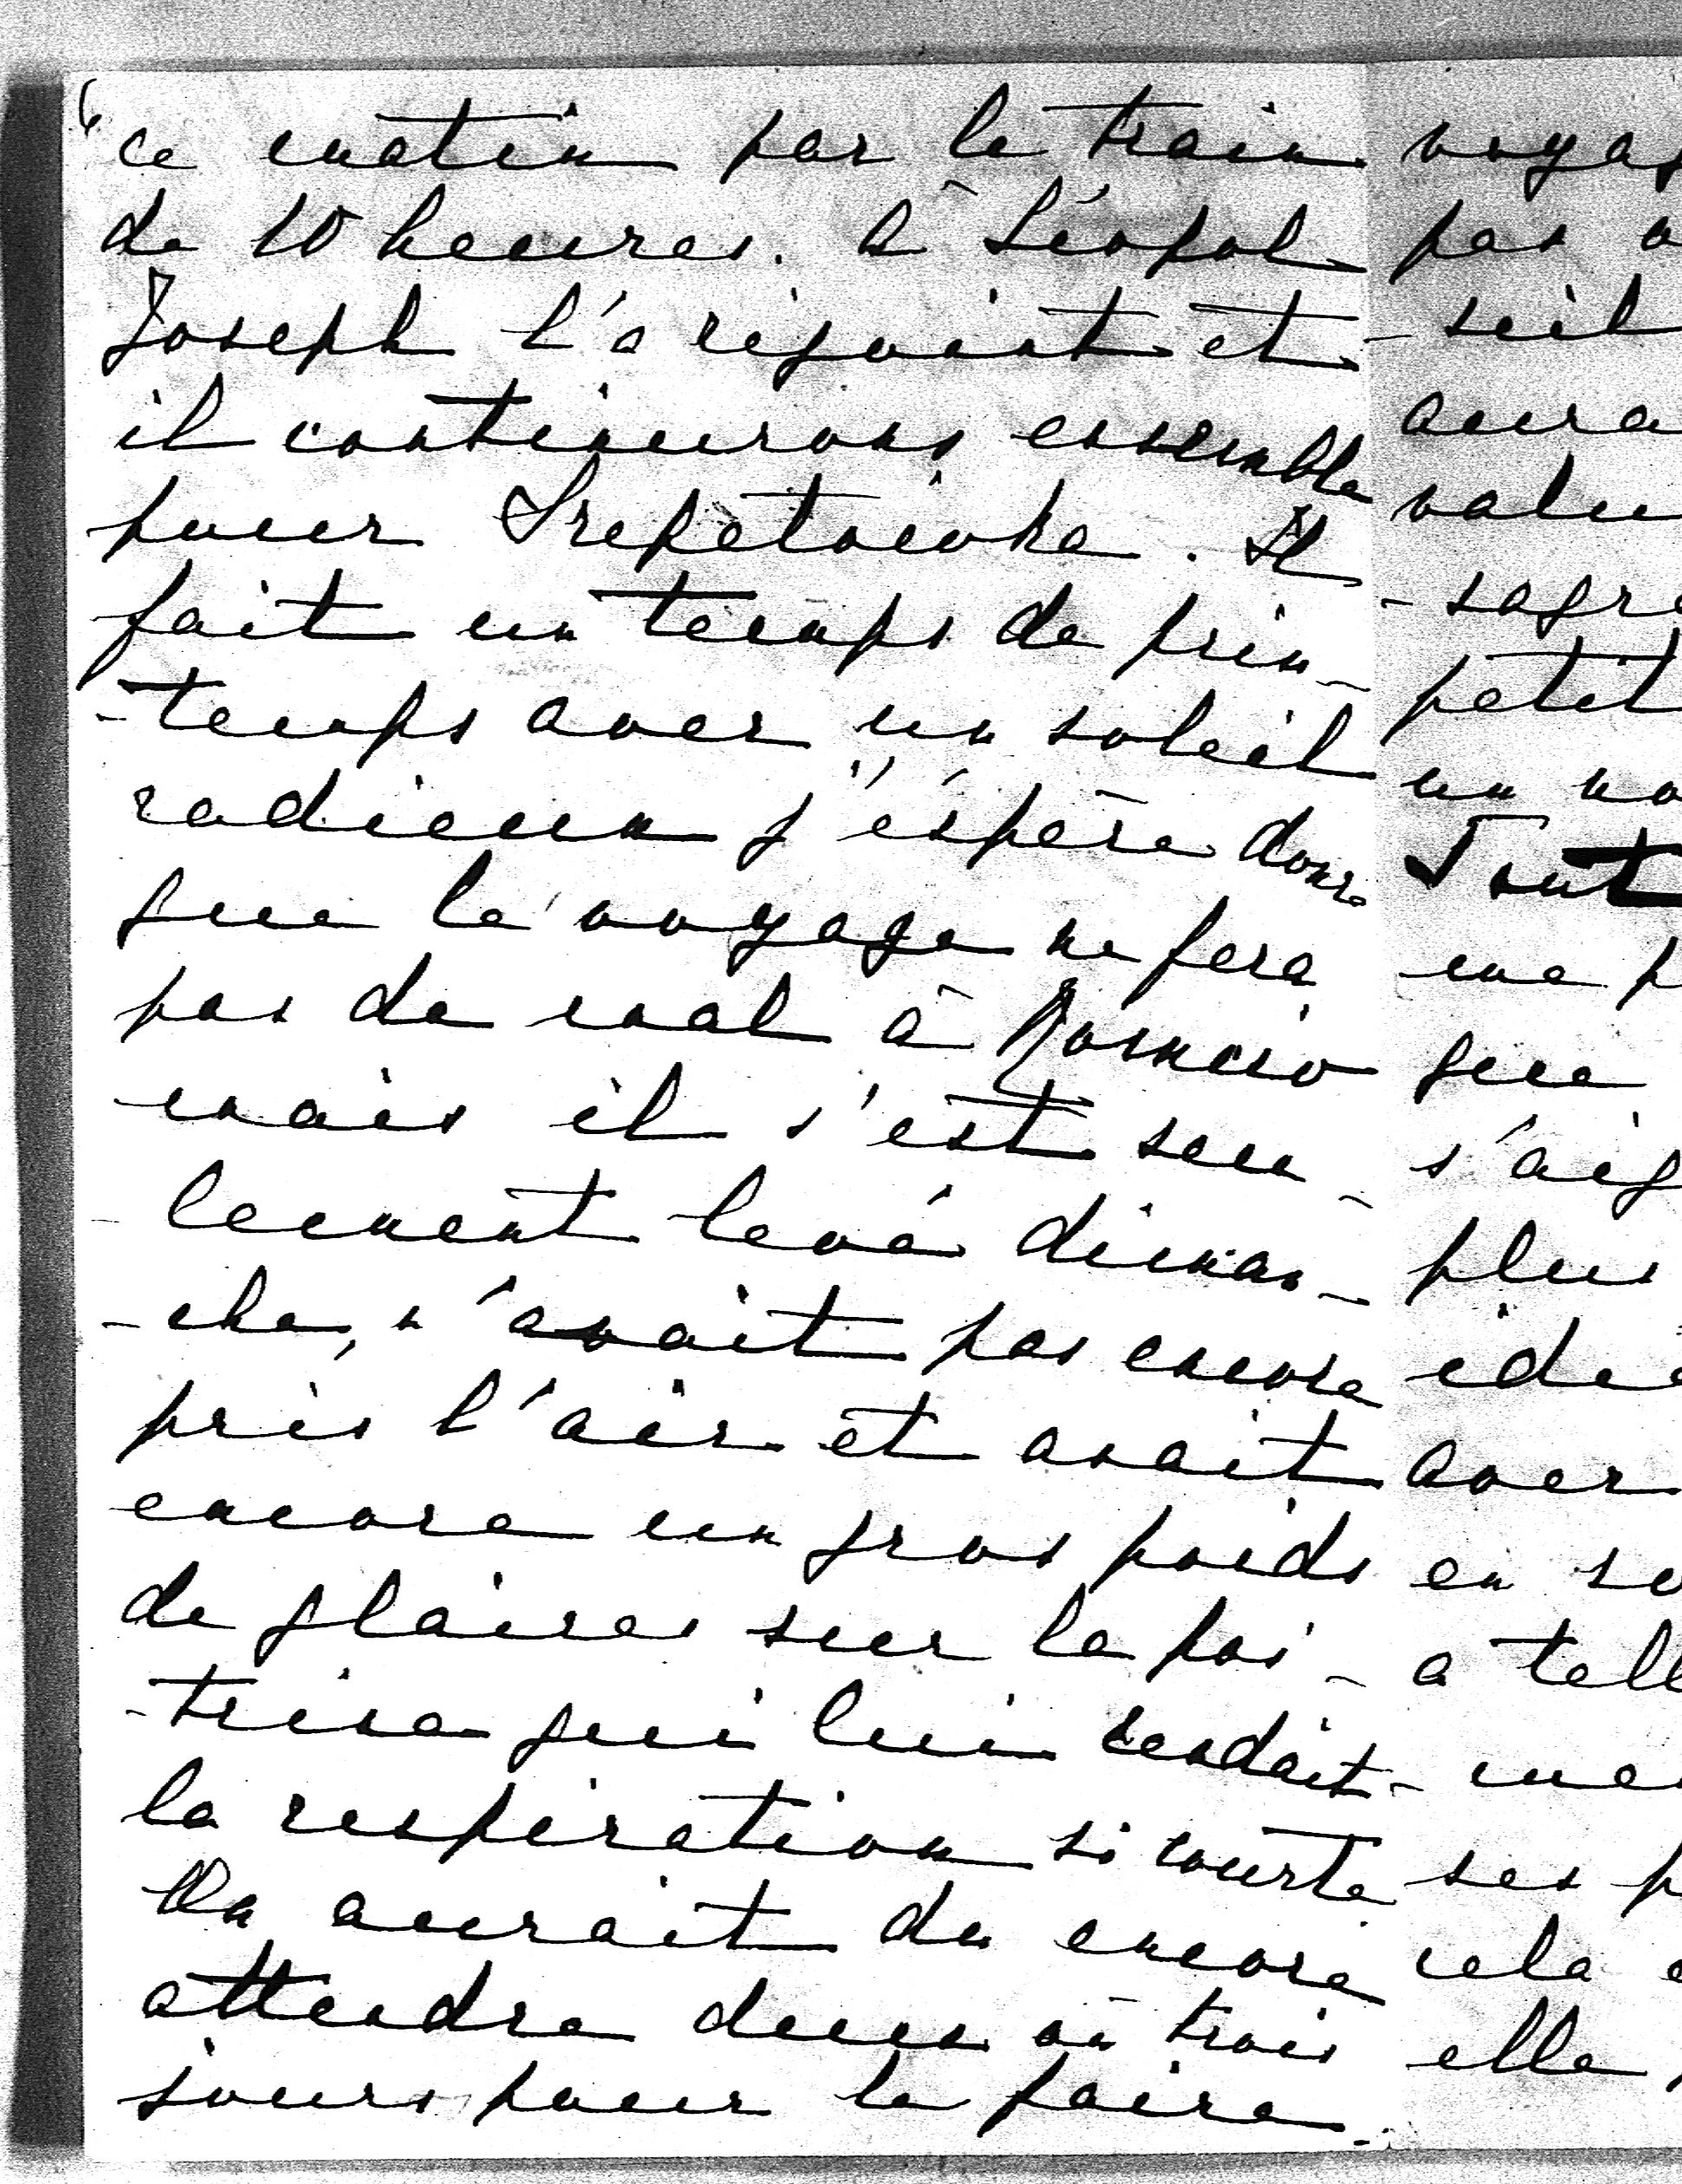 6
ce matin par le train
de 10 heures. à Léopol
Joseph l'a rejoint et
il continuerons ensemble
pour Srepetowka. Il
fait un temps de prin-
-temps avec un soleil
radieux j'éspère donc
que le voyage ne fera
pas de mal à Romcio
mais il s'est seu-
-lement levé diman-
-che, n'avait pas encore
pris l'air et avait
encore un gros poids
de glaires sur la poi-
-trine qui lui rendait
la respiration si courte
On aurait du encore
attendre deux où trois
jours pour le faire.
voyag
pas a
-seil
aura
valu
-sagré
petit
un no
Tout
me p
que
s'aig
plus
idée
avec
en se
a tell
-me
ses p
cela
elle